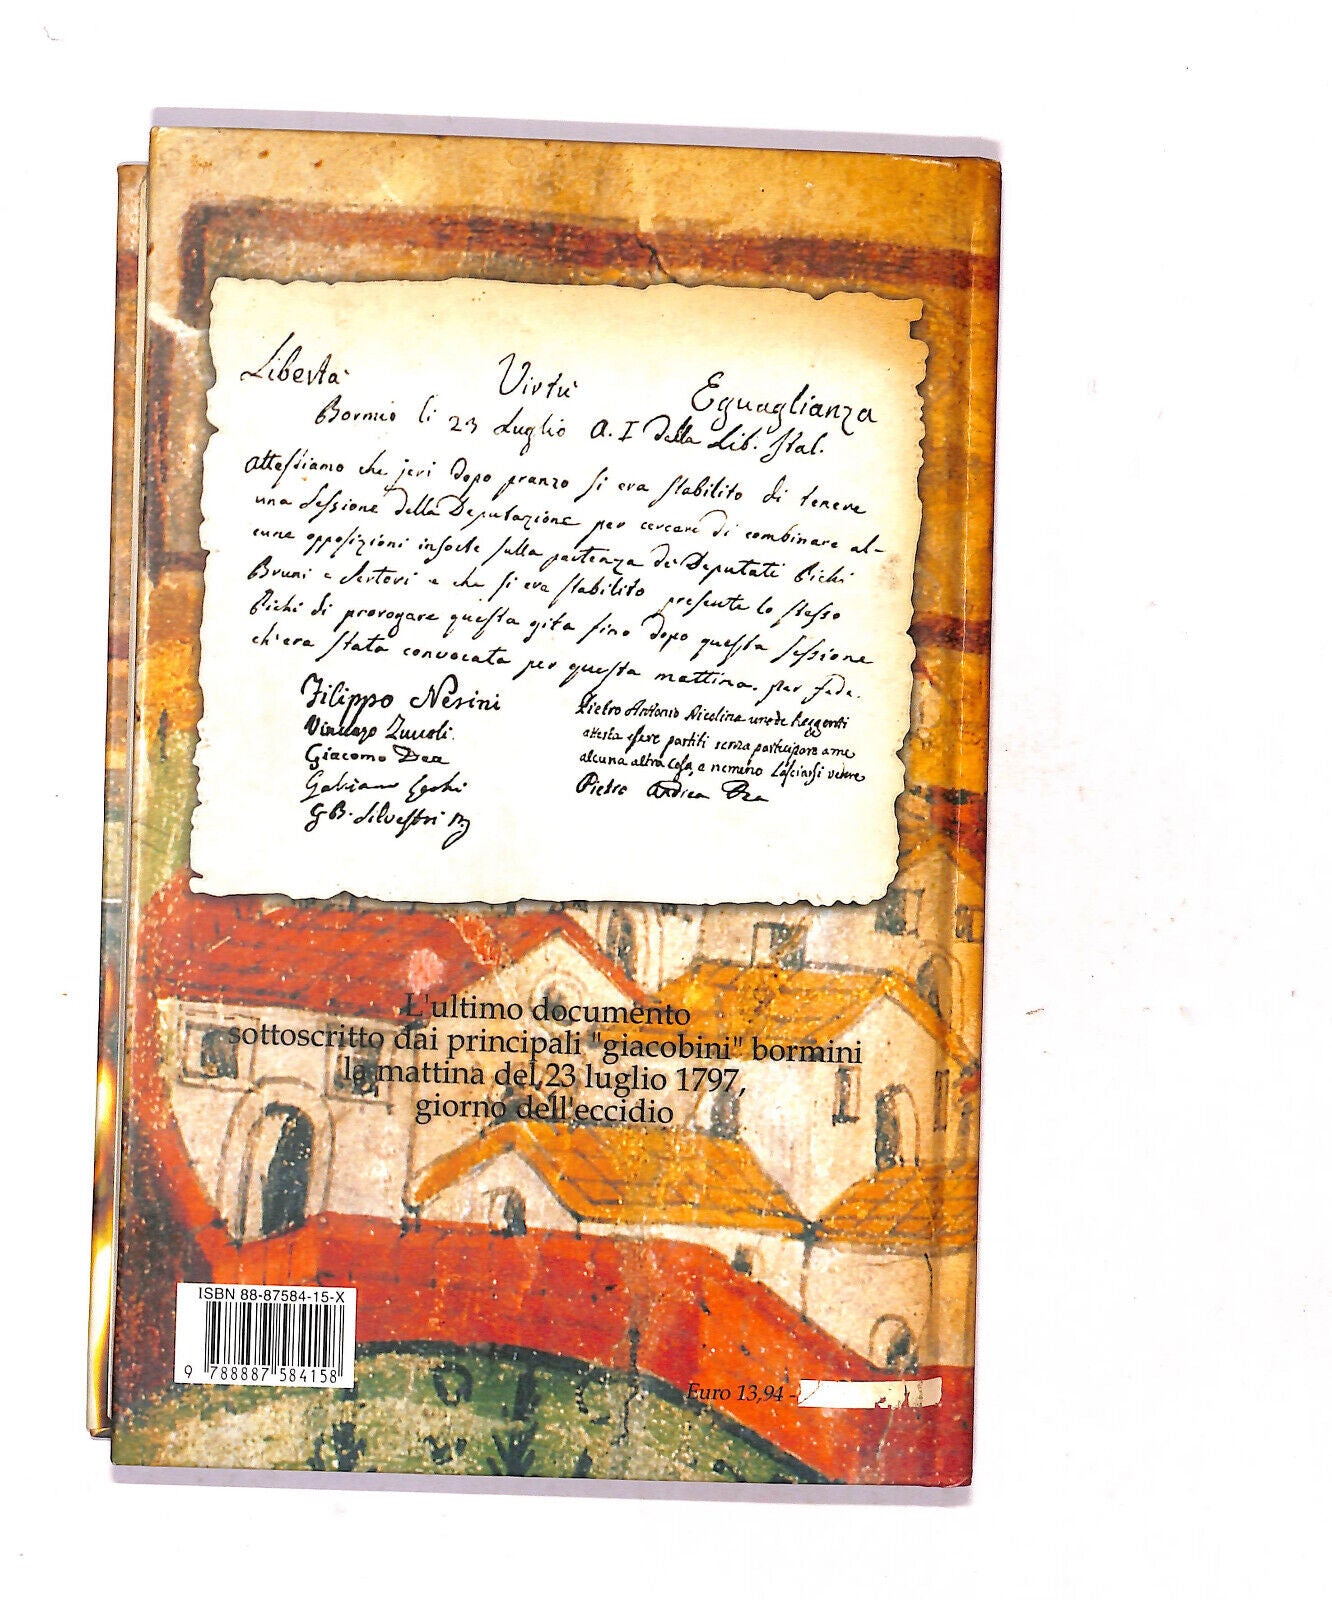 Libertà Virtù Eguaglianza
Bormio li 23 Luglio A. I della Lib. Ital.
Attestiamo che jeri dopo pranzo si era stabilito di tenere
una Sessione della Deputazione per cercare di combinare al-
cune opposizioni insorte sulla partenza de' Deputati Pichi
Bruni e Sertori e che si era stabilito presente lo stesso
Pichi di prorogare questa gita fino dopo questa sessione
ch'era stata convocata per questa mattina. per fede.
Filippo Nesini
Vincenzo Zuccoli.
Giacomo Dea
G.B. Silvestri
Pietro Antonio Nicolina uno de Reggenti
attesta essere partiti senza participare a me
alcuna altra cosa, e nemeno Lasciarsi vedere
Pietro Andrea
L'ultimo documento
sottoscritto dai principali "giacobini" bormini
la mattina del 23 luglio 1797,
giorno dell'eccidio
ISBN 88-87584-15-X
9 788887 584158
Euro 13,94 -